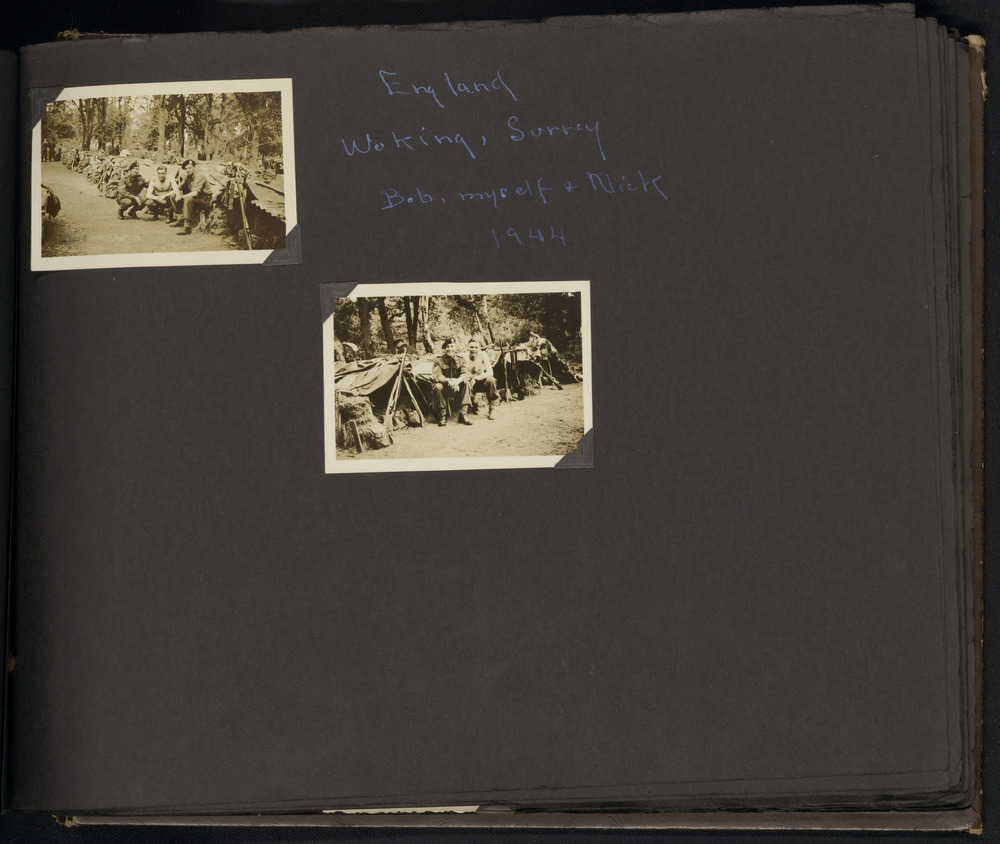 England
Woking, Surrey
Bob, myself & Nick
1944